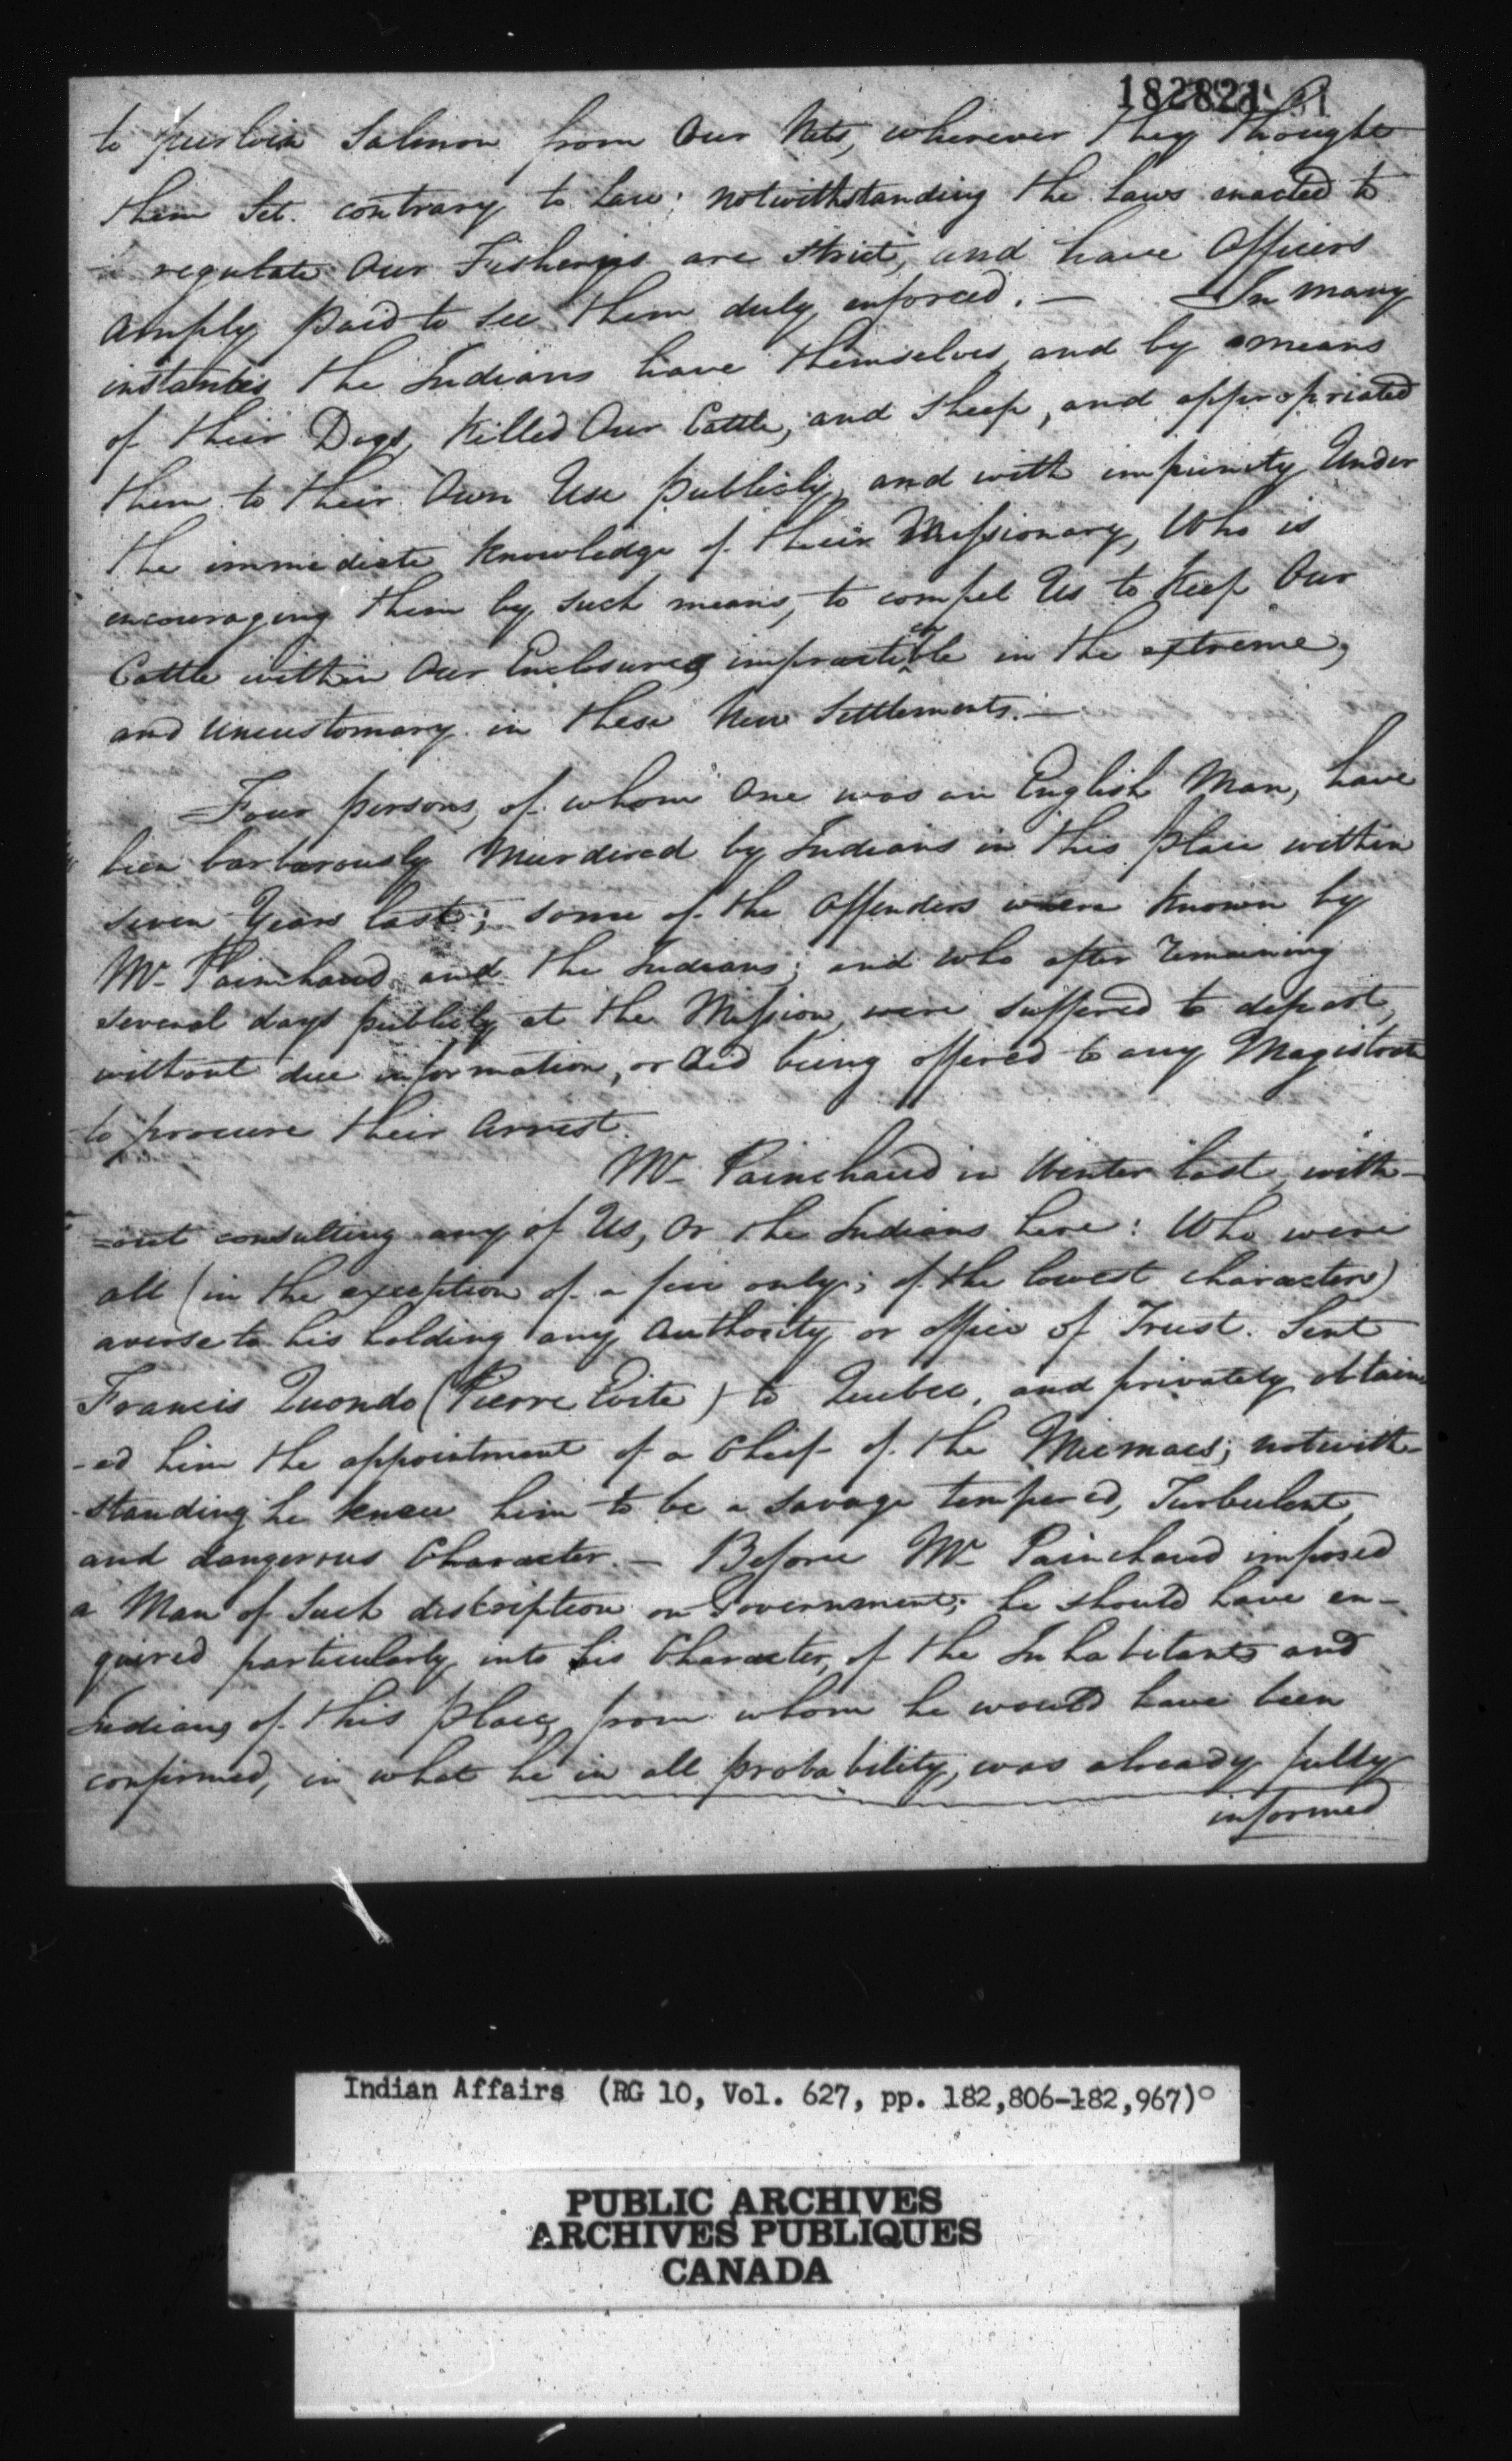 182821
to purloin Salmon from Our Nets, wherever they thought
them Set contrary to Law; notwithstanding the Laws enacted to
regulate Our Fisheries are strict, and have Officers
amply paid to see them duly enforced. — In many
instances the Indians have themselves, and by means
of their Dogs, Killed Our Cattle, and Sheep, and appropriated
them to their Own Use publicly, and with impunity Under
the immediate Knowledge of their Missionary, Who is
encouraging them by such means, to compel Us to Keep Our
Cattle within Our Enclosures, impracticable in the extreme,
and uncustomary in these New Settlements. —
Four persons, of whom One was an English Man, have
been barbarously Murdered by Indians in this place within
seven Years last; some of the Offenders were Known by
Mr. Painchaud and the Indians; and who after remaining
several days publicly at the Mission, were suffered to depart,
without due information, or Aid being offered to any Magistrate
to procure their Arrest.
Mr. Painchaud in Winter last, with-
-out consulting any of Us, Or the Indians here: Who were
all (in the exception of a few only; of the lowest characters)
averse to his holding any Authority or office of Trust. Sent
Francis Quondo (Pierre ) to Quebec, and privately obtain-
-ed him the appointment of a Chief of the Micmacs; notwith-
-standing he knew him to be a savage tempered, Turbulent,
and dangerous Character. — Before Mr. Painchaud imposed
a Man of Such description on Government; he should have en-
quired particularly into his Character, of the Inhabitants and
Indians of this place, from whom he would have been
confirmed, in what he in all probability, was already fully
informed
Indian Affairs (RG 10, Vol. 627, pp. 182,806-182,967)
PUBLIC ARCHIVES
ARCHIVES PUBLIQUES
CANADA